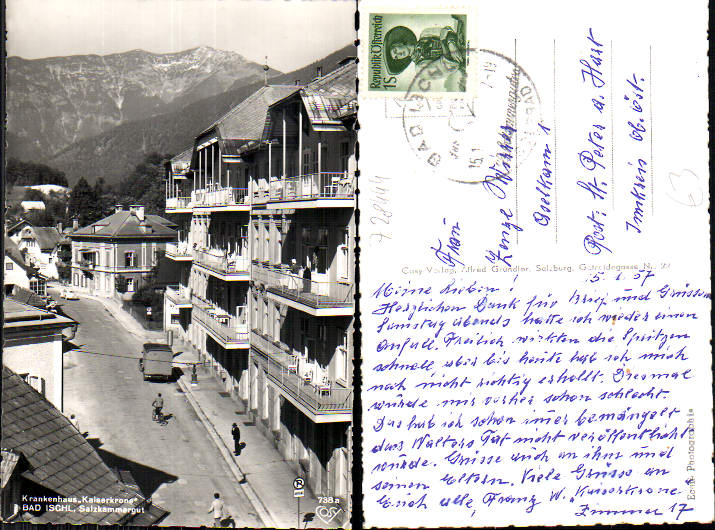 Krankenhaus „Kaiserkrone"
BAD ISCHL, Salzkammergut
738a
COSY
Republik Österreich
1S
BAD ISCHL
15.1
7-19
Frau
Edelkam 1
Post: St. Peter a. Hart
Innkreis ob. öst.
63
728144
Cosy-Verlag, Alfred Gründler, Salzburg, Getreidegasse Nr. 22
15. 1. 57
Meine Lieben!
Herzlichen Dank für Brief und Grüsse.
Samstag abends hatte ich wieder einen
Anfall. Freilich wirkten die Spritzen
schnell, aber bis heute hab ich mich
noch nicht richtig erholt. Diesmal
wurde mir vorher schon schlecht.
Das hab ich schon immer bemängelt
dass Walters Tat nicht veröffentlicht
wurde. Grüsse auch an ihn und
seinen Eltern. Viele Grüsse an
Euch alle, Franz W. „Kaiserkrone"
Zimmer 17
Echte Photographie